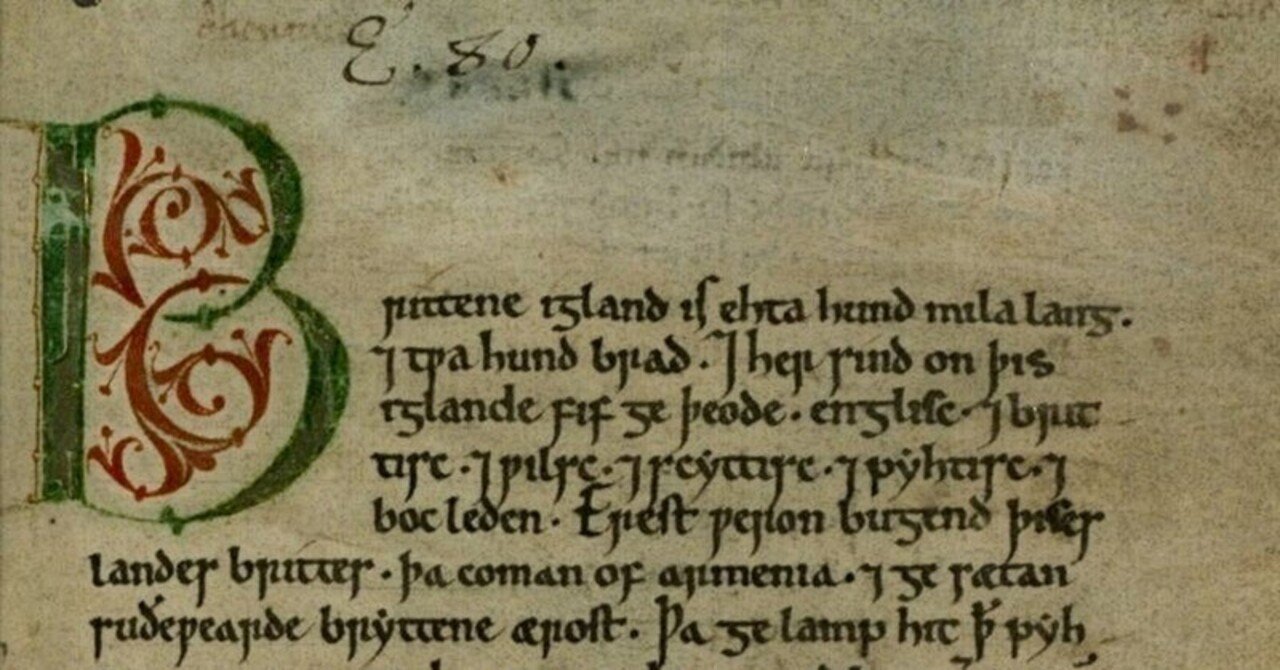 E. 80.
Brittene igland is ehta hund mila lang.
⁊ tƿa hund brad. ⁊ her sind on þis
iglande fif ge þeode. englisc. ⁊ brit
tisc. ⁊ ƿilsc. ⁊ scẏttisc. ⁊ pẏhtisc. ⁊
boc leden. Erest ƿeron bugend þises
landes brittes. þa coman of armenia. ⁊ ge sætan
suðeƿearde brẏttene ærost. Þa ge lamp hit ꝥ pẏh